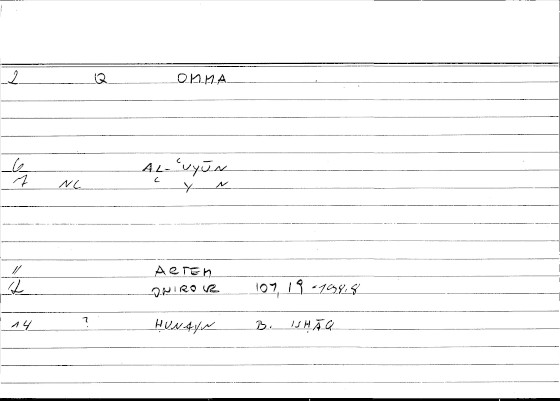 2 Q OMMA
6 AL-ʿUYŪN
7 NC ʿ Y N
11 ARTEM
12 ONIROCR 107,19-108.8
14 ? ḤUNAYN B. ISḤĀQ